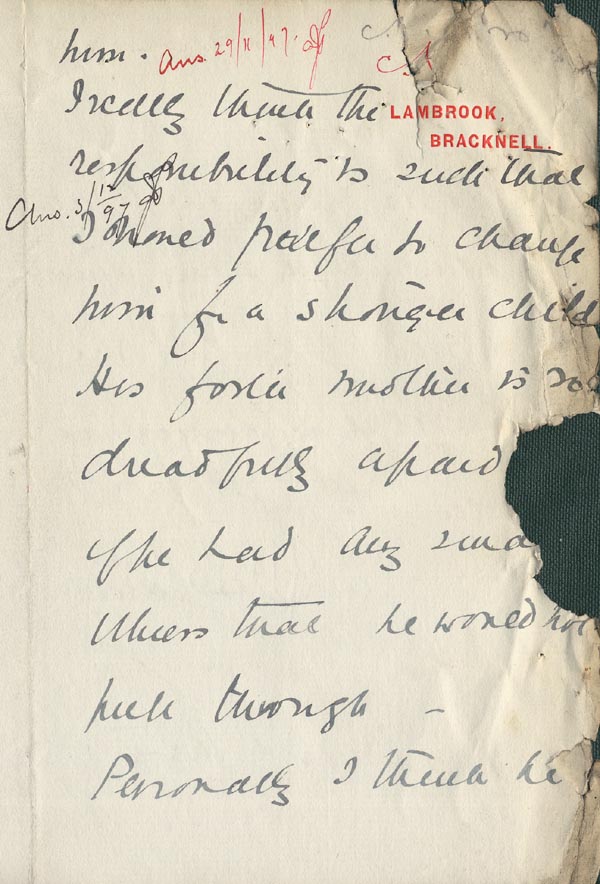 him.
Ans. 29/11/97.
I really think the
LAMBROOK,
BRACKNELL.
responsibility is such that
Ans. 3/12/97
I should prefer to change
him for a stronger child
His foster mother is so
dreadfully afraid
if he had any sma
illness that he would not
pull through –
Personally I think he